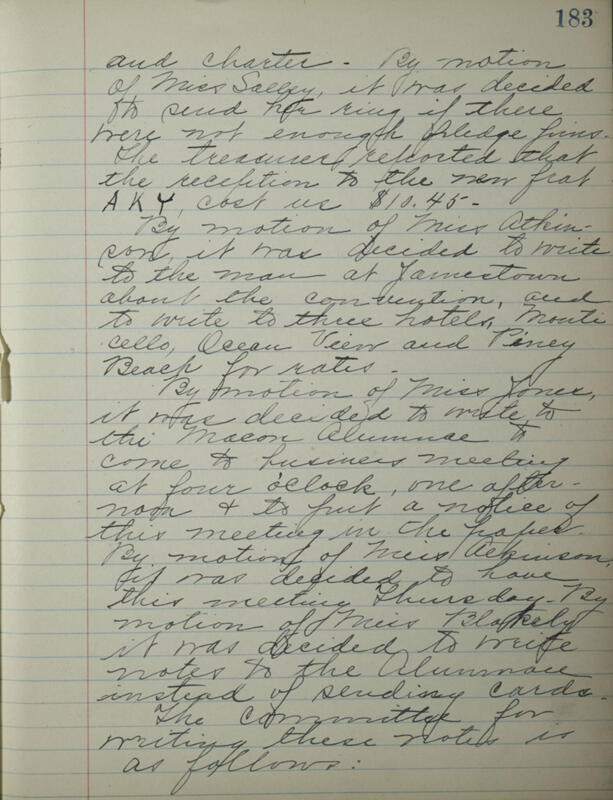 183
and charter - By motion
of Miss Salley, it was decided
to send her ring if there
were not enough pledge pins.
The treasurer reported that
the reception to the new frat
AKY, cost us $10.45-
By motion of Miss Atkin-
son, it was decided to write
to the man at Jamestown
about the convention, and
to write to three hotels, Monti
cello, Ocean View and Piney
Beach for rates.
By motion of Miss Jones,
it was decided to write to
the Macon Alumnae to
come to business meeting
at four o'clock, one after-
noon & to put a notice of
this meeting in the paper.
By motion of Miss Atkinson,
it was decided to have
this meeting Thursday. By
motion of Miss Blakely
it was decided to write
notes to the Alumnae
instead of sending cards.
The committee for
writing these notes is
as follows: